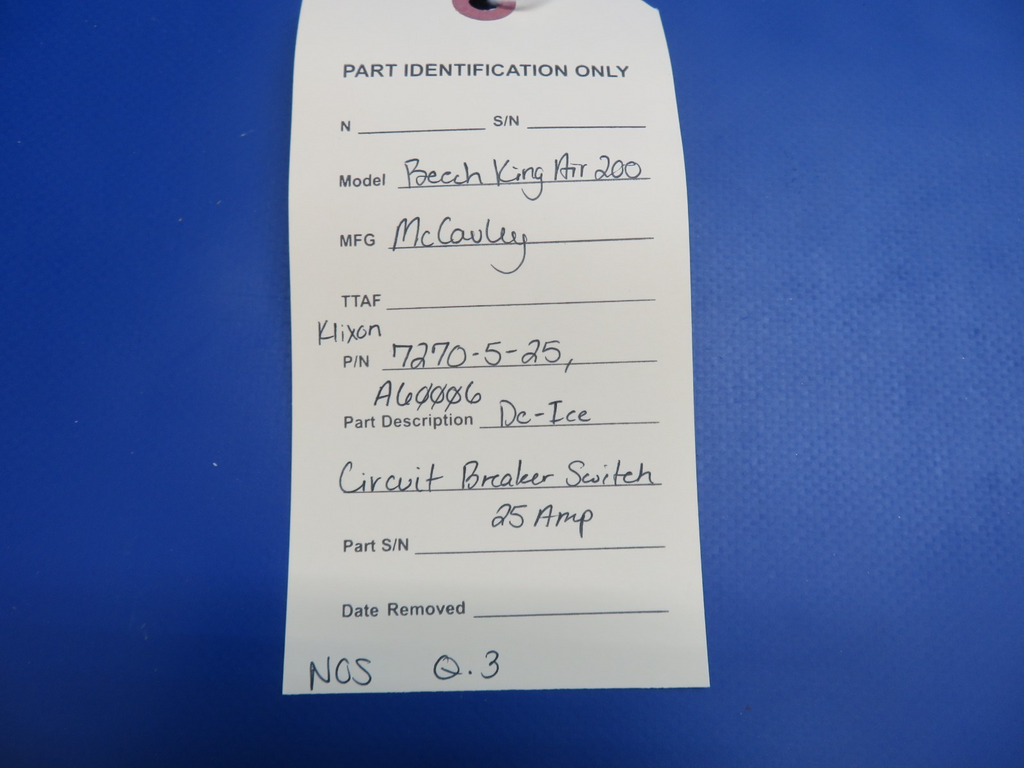 PART IDENTIFICATION ONLY
N S/N
Model Beech King Air 200
MFG McCauley
TTAF
Klixon
P/N 7270-5-25,
A60006
Part Description De-Ice
Circuit Breaker Switch
25 Amp
Part S/N
Date Removed
NOS Q.3